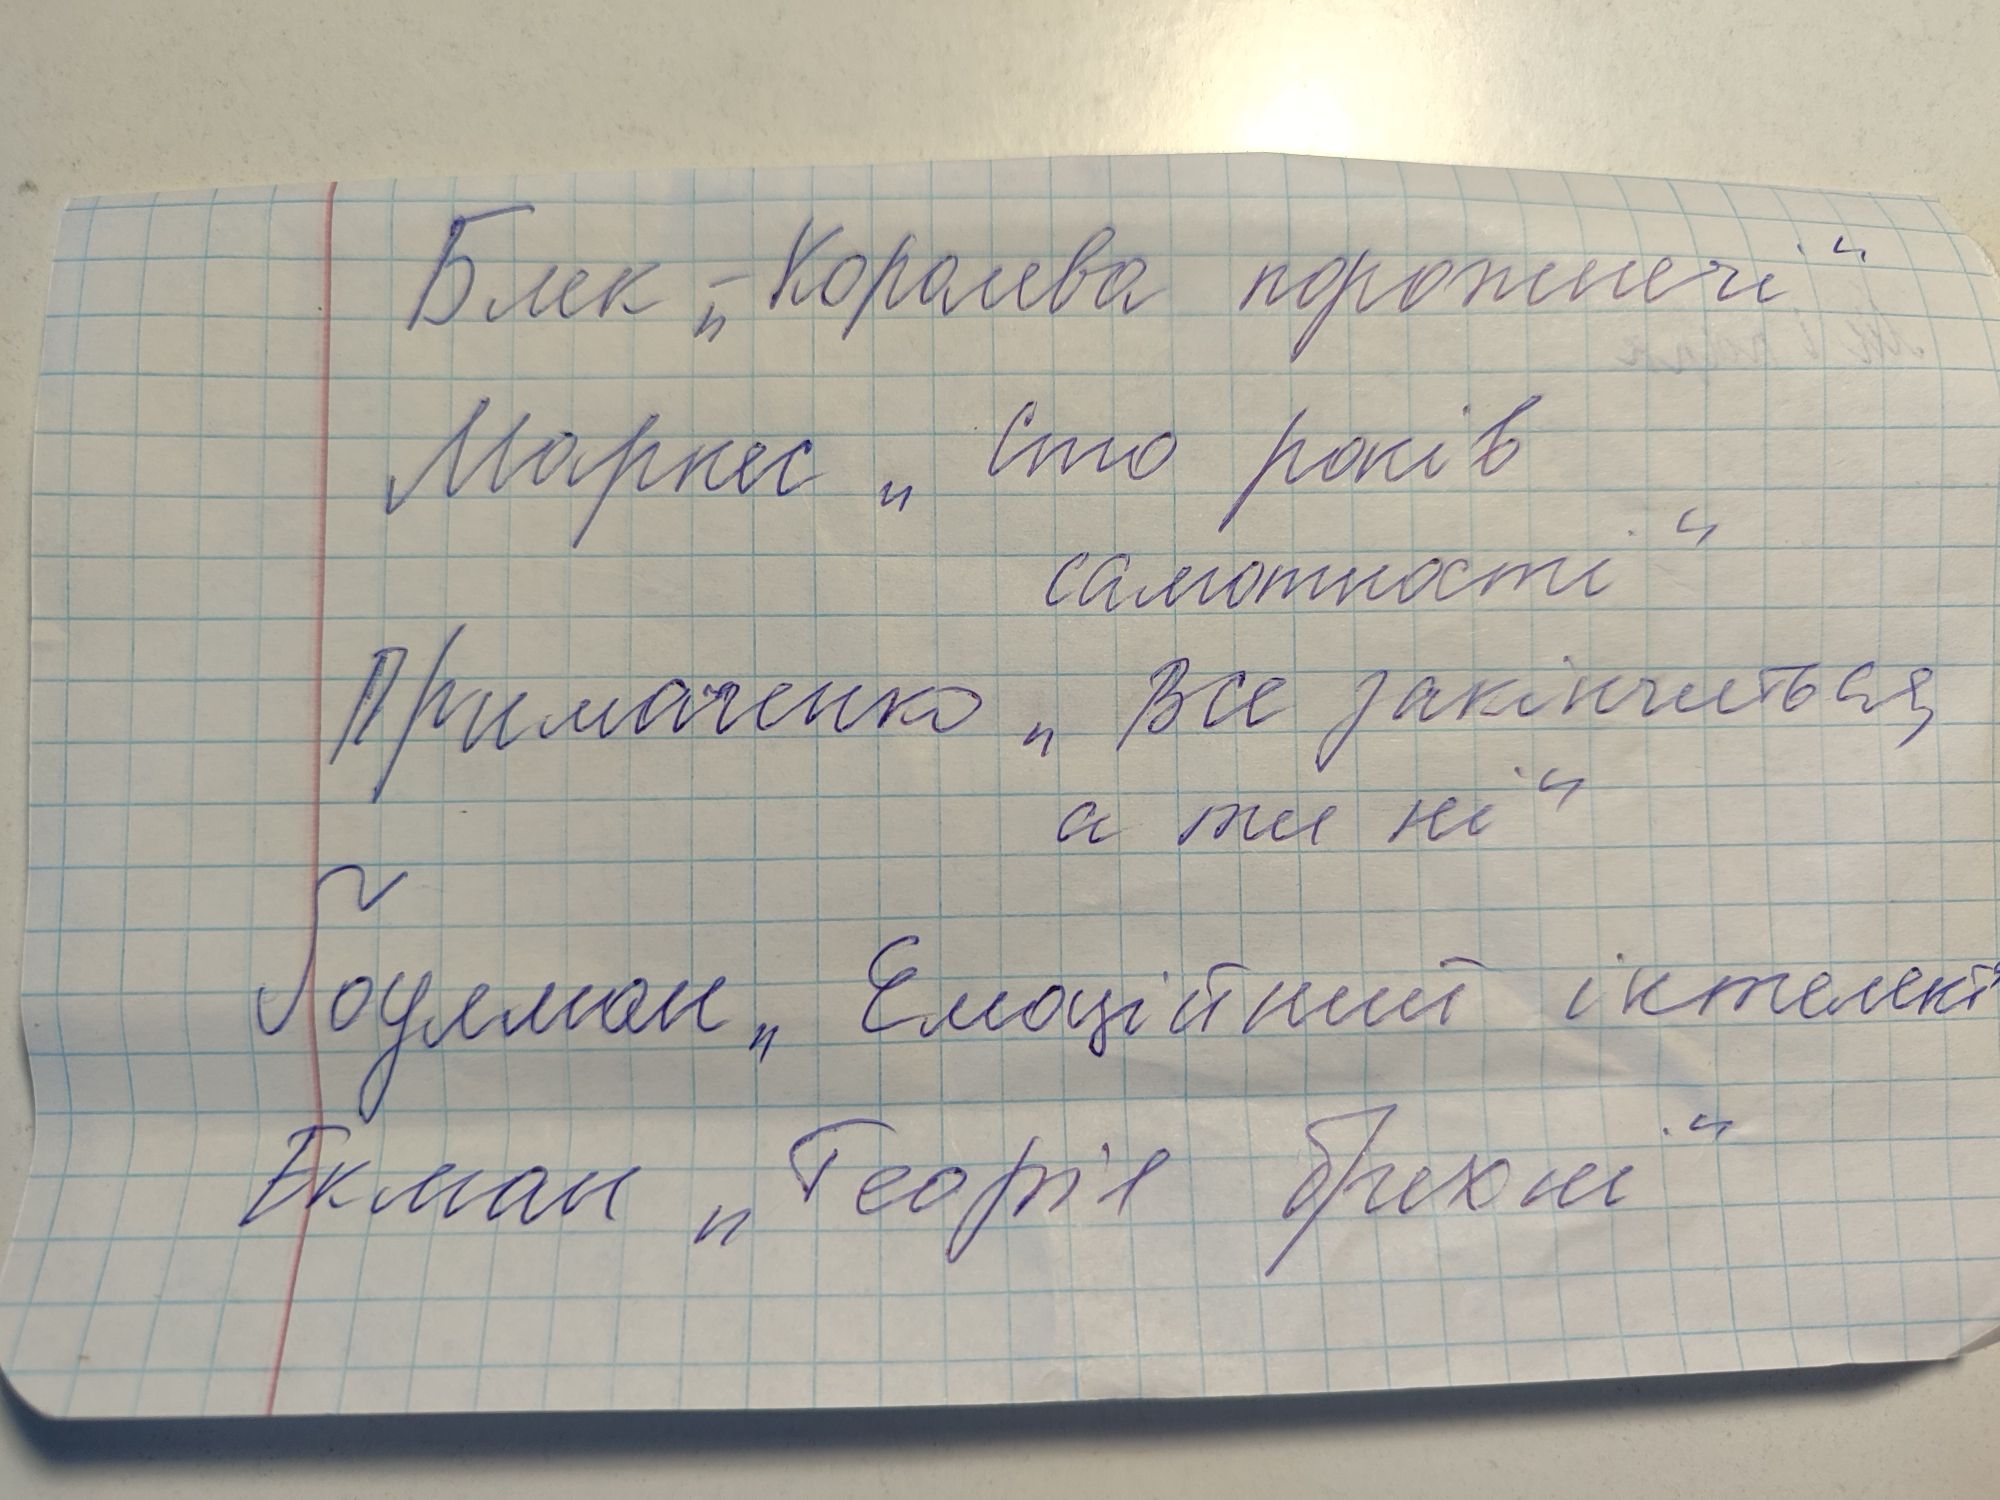 Блек „Королева порожнечі“
Маркес „Сто років
самотності“
Примаченко „Все закінчиться,
а ти ні“
Ґоулман „Емоційний інтелект“
Екман „Теорія брехні“